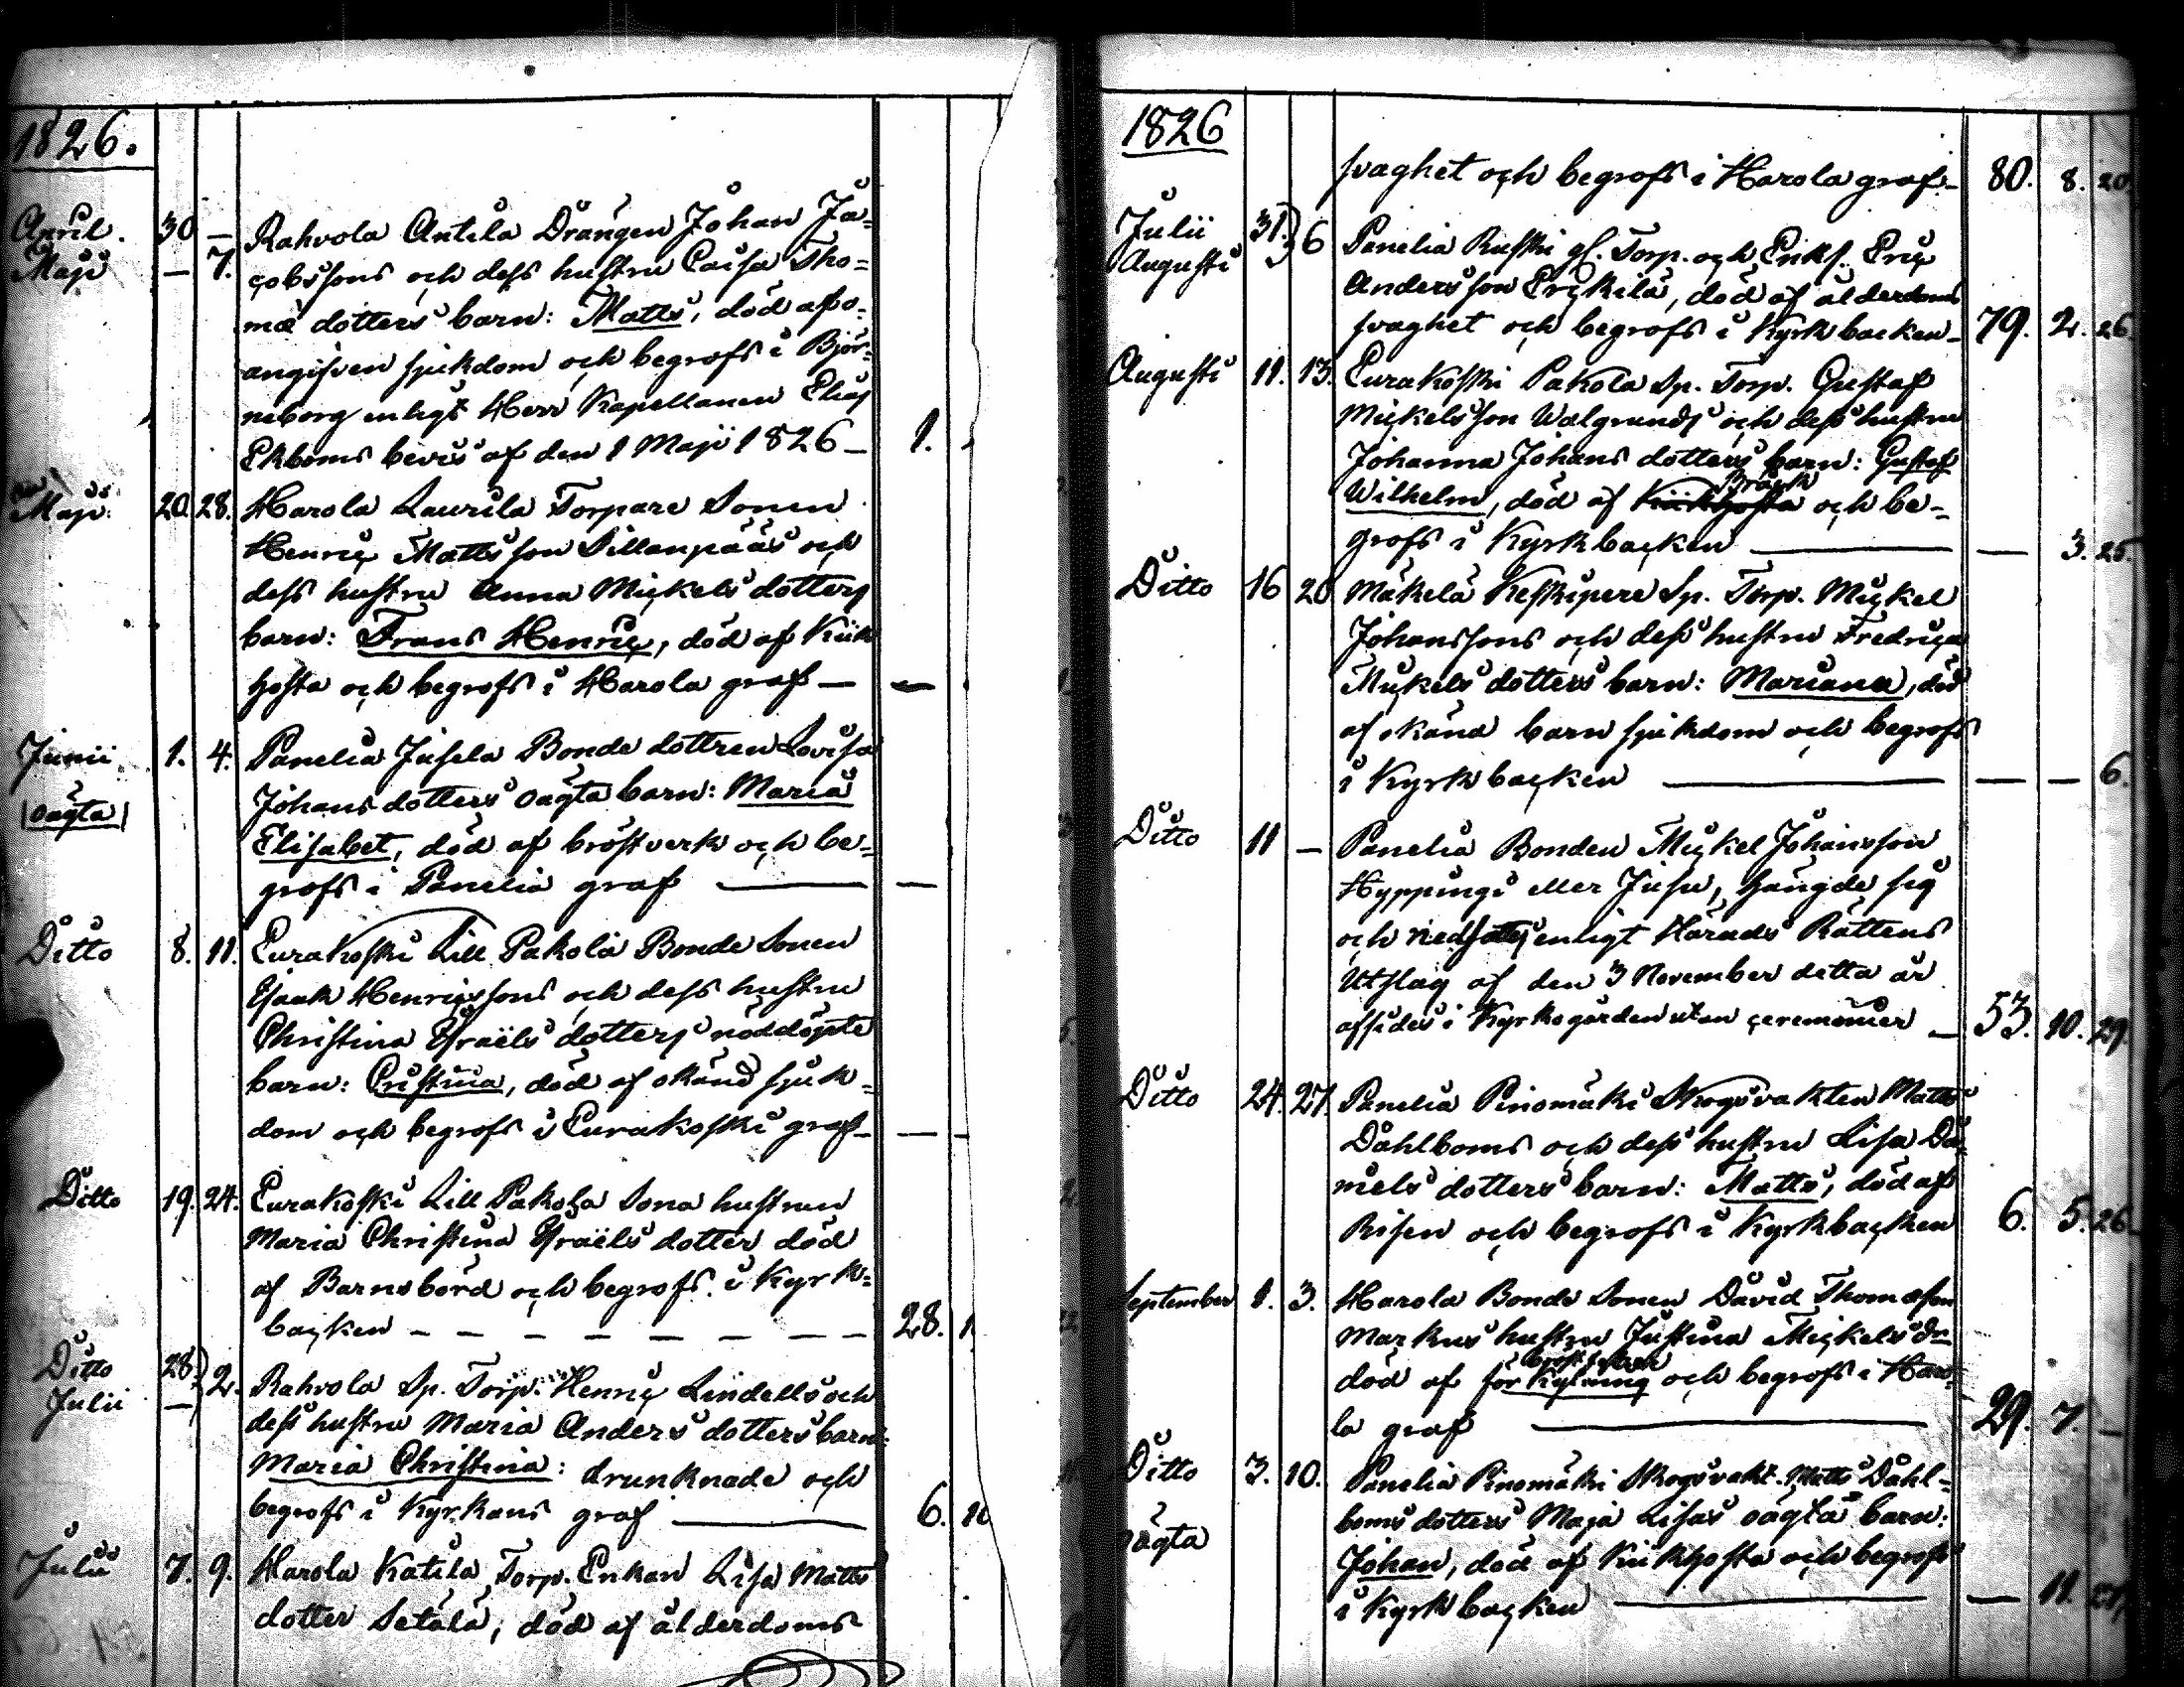 1826.
April. 30 — Rahvola Antila Drängen Johan Ja-
Maji — 7. cobssons och dess hustru Caisa Tho-
mæ dotters barn: Matts, död af o-
angifven sjukdom och begrofs i Björ-
neborg enligt Herr Kapellanen Elias
Ekboms bevis af den 1 Maji 1826 — 1.
Maji 20. 28. Harola Laurila Torpare Sonen
Henric Mattsson Sillanpääs och
dess hustru Anna Mickels dotters
barn: Frans Henric, död af Kik
hosta och begrofs i Harola graf — —
Junii 1. 4. Panelia Jusela Bonde dottren Lovisa
(oägta) Johans dotters oägta barn: Maria
Elisabet, död af bröstverk och be-
grofs i Panelia graf — —
Ditto 8. 11. Eurakoski Lill Pakola Bonde Sonen
Isaak Henricssons och dess hustru
Christina Israëls dotters nöddöpte
barn: Cristina, död af okänd sjuk-
dom och begrofs i Eurakoski graf — — —
Ditto 19. 24. Eurakoski Lill Pakola Sona hustrun
Maria Christina Israëls dotter död
af Barnsbörd och begrofs i Kyrk-
backen — — — — — — — 28. 1.
Ditto 28 2. Rahvola Sp. Torp. Henric Lindells och
Julii — dess hustru Maria Anders dotters barn:
Maria Christina: drunknade och
begrofs i Kyrkans graf — 6. 10
Julii 7. 9. Harola Katila Torp. Enkan Lisa Matts
dotter Setälä, död af ålderdoms
1826
svaghet och begrofs i Harola graf — 80. 8. 20.
Julii 31. 6 Panelia Ruski gl. Torp. och Enkl. Eric
Augusti Andersson Erickilä, död af ålderdoms
svaghet och begrofs i Kyrkbacken — 79. 2. 26.
Augusti 11. 13. Eurakoski Pakola Sp. Torp. Gustaf
Mickelsson Walgrunds och dess hustru
Johanna Johans dotters barn: Gustaf
Bråck
Wilhelm, död af Kikhosta och be-
grofs i Kyrkbacken — — 3. 25.
Ditto 16 20 Mäkelä Keskipere Sp. Torp. Mickel
Johanssons och dess hustru Fredrica
Mickels dotters barn: Mariana, död
af okänd barn sjukdom och begrofs
i Kyrkbacken — — — 6.
Ditto 11 — Panelia Bonden Mickel Johansson
Hyppingi eller Jusu, hängde sig
och nedsattes enligt Härads Rättens
Utslag af den 3 November detta år
afsides i Kyrkogården utan ceremonier — 53. 10. 29.
Ditto 24. 27. Panelia Pinomäki Skogsvakten Matts
Dahlboms och dess hustru Lisa Da-
niels dotters barn: Matts, död af
Risen och begrofs i Kyrkbacken 6. 5. 26.
September 1. 3. Harola Bonde Sonen David Thomasson
Markus hustru Justina Mickels dr
död af förkylning och begrofs i Haro-
la graf — 29. 7. —
Ditto 3. 10. Panelia Pinomäki Skogsvakt. Matts Dahl-
boms dotters Maja Lisas oägta barn:
oägta Johan, död af Kikhosta och begrofs
i Kyrkbacken — — 11. 27.